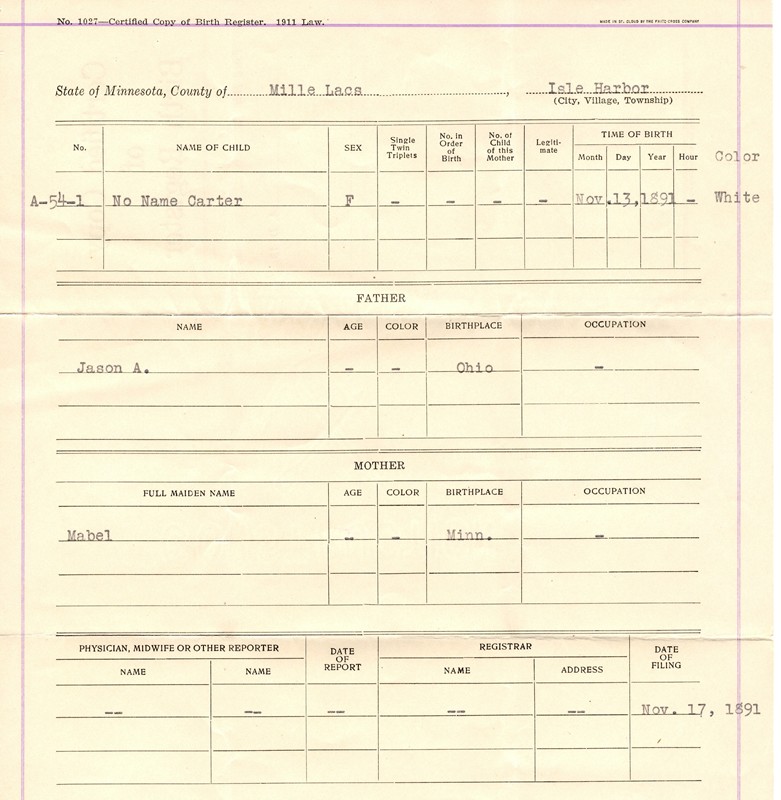 No. 1027—Certified Copy of Birth Register. 1911 Law.
MADE IN ST. CLOUD BY THE FRITZ-CROSS COMPANY
State of Minnesota, County of Mille Lacs, Isle Harbor
(City, Village, Township)
No. NAME OF CHILD SEX Single Twin Triplets No. in Order of Birth No. of Child of this Mother Legiti- mate TIME OF BIRTH
Month Day Year Hour Color
A-54-1 No Name Carter F - - - - Nov. 13, 1891 - White
FATHER
NAME AGE COLOR BIRTHPLACE OCCUPATION
Jason A. - - Ohio -
MOTHER
FULL MAIDEN NAME AGE COLOR BIRTHPLACE OCCUPATION
Mabel - - Minn. -
PHYSICIAN, MIDWIFE OR OTHER REPORTER DATE OF REPORT REGISTRAR DATE OF FILING
NAME NAME NAME ADDRESS
-- -- -- -- -- Nov. 17, 1891